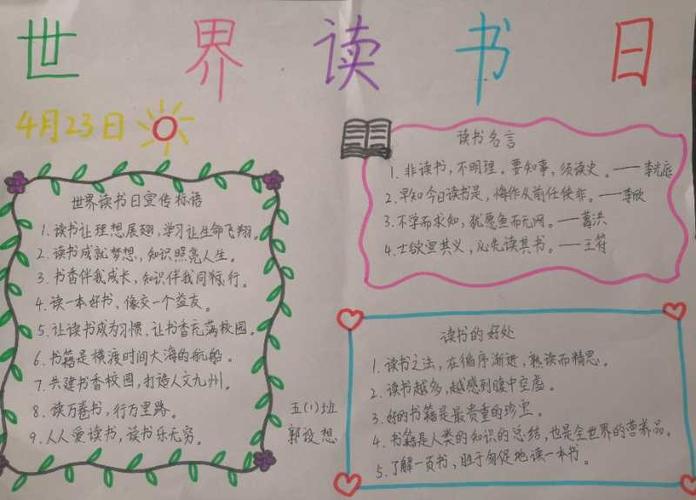 世界读书日
4月23日
世界读书日宣传标语
1. 读书让理想展翅，学习让生命飞翔。
2. 读书成就梦想，知识照亮人生。
3. 书香伴我成长，知识伴我同行。
4. 读一本好书，像交一个益友。
5. 让读书成为习惯，让书香充满校园。
6. 书籍是横渡时间大海的航船。
7. 共建书香校园，打造人文九州。
8. 读万卷书，行万里路。
9. 人人爱读书，读书乐无穷。
五(1)班
郭设想
读书名言
1. 非读书，不明理。要知事，须读史。——李光庭
2. 早知今日读书是，悔作从前任侠非。——李欣
3. 不学而求知，犹愿鱼而无网。——葛洪
4. 士欲宣其义，必先读其书。——王符
读书的好处
1. 读书之法，在循序渐进，熟读而精思。
2. 读书越多，越感到腹中空虚。
3. 好的书籍是最贵重的珍宝。
4. 书籍是人类的知识的总结，也是全世界的营养品。
5. 了解一页书，胜于匆促地读一本书。